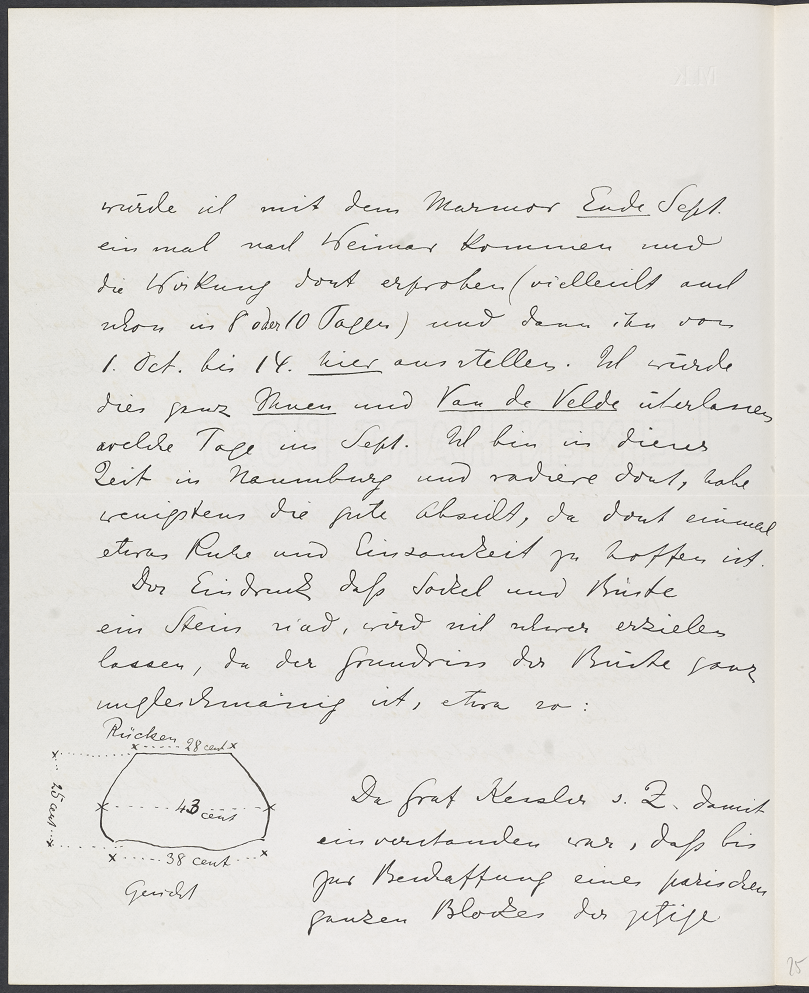 würde ich mit dem Marmor Ende Sept.
ein mal nach Weimar kommen und
die Wirkung dort erproben (vielleicht auch
schon in 8 oder 10 Tagen) und dann ihn vom
1. Oct. bis 14. hier ausstellen. Ich würde
dies ganz Ihnen und Van de Velde überlassen
welche Tage im Sept. Ich bin in dieser
Zeit in Naumburg und radiere dort, habe
wenigstens die gute Absicht, da dort einmal
etwas Ruhe und Einsamkeit zu hoffen ist.
Der Eindruck daß Sockel und Büste
ein Stein sind, wird sich schwer erzielen
lassen, da der Grundriss der Büste ganz
ungleichmässig ist, etwa so:
Rücken
28 cent
25 cent
43 cent
38 cent
Gesicht
Da Graf Kessler s. Z. damit
einverstanden war, daß bis
zur Beschaffung eines parischen
ganzen Blockes der jetzige
25